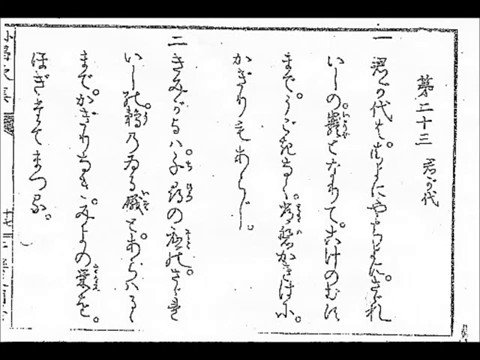 第二十三 君が代
一 君が代は。ちよにやちよに。さゞれ
いしの。巌となりて。こけのむす
まで。うごきなく。常磐かきはに。
かぎりもあらじ。
二 きみがよは。千尋の底の。さゞれ
いしの。鵜のゐる磯と。あらはるゝ
まで。かぎりなき。みよの栄を。
ほぎたてまつる。